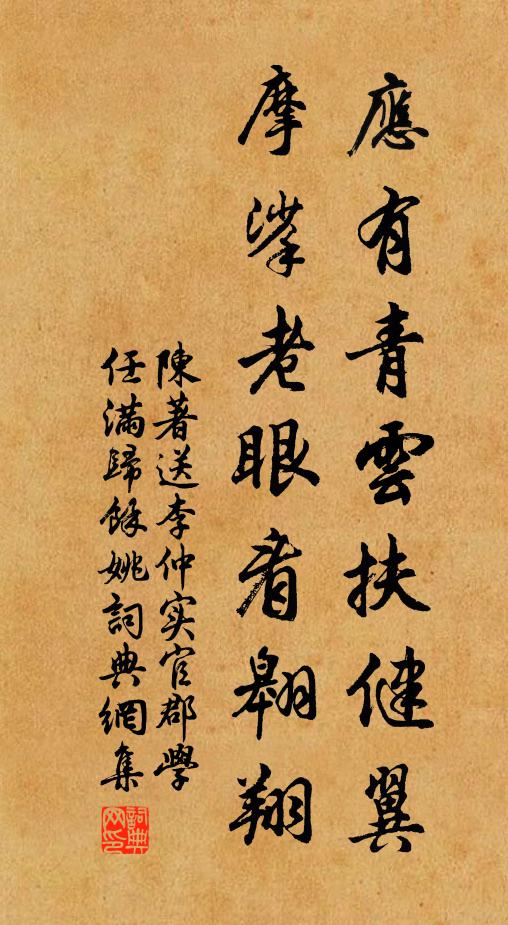 應有青雲扶健翼
摩挲老眼看翱翔
陳著送李仲实官郡學
任滿歸餘姚詞典網集
詞典
网印